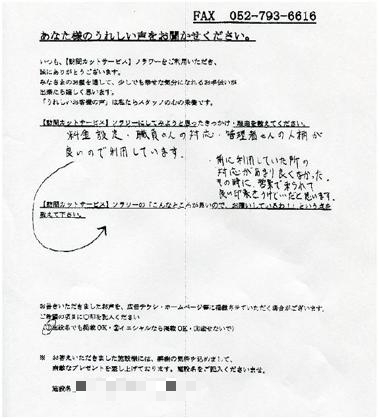 FAX 052-793-6616
あなた様のうれしい声をお聞かせください。
いつも、【訪問カットサービス】ソラリーをご利用いただき、
誠にありがとうございます。
みなさまのお髪を通して、少しでも幸せな気分になれるお手伝いが
出来たら嬉しく思います。
「うれしいお客様の声」は私たちスタッフの心の栄養です。
【訪問カットサービス】ソラリーにしてみようと思ったきっかけ・理由を教えてください。
料金設定・職員さんの対応・管理者さんの人柄が
良いので利用しています。
・前に利用していた所の
対応があまり良くなかった。
その時に、営業で来られて
良い印象をうけたいだと思います。
【訪問カットサービス】ソラリーの「こんなところが良いので、お願いしているわ！」という点を
教えて下さい。
お書きいただきましたお声を、広告チラシ・ホームページ等に掲載させていただく場合がございます。
ご希望の項目に○印を記入ください
①施設名でも掲載OK・②イニシャルなら掲載OK・③載せないで）
※ お答えいただきました施設様には、感謝の気持を込めまして、
素敵なプレゼントを差し上げております。施設名をご記入くださいませ。
施設名